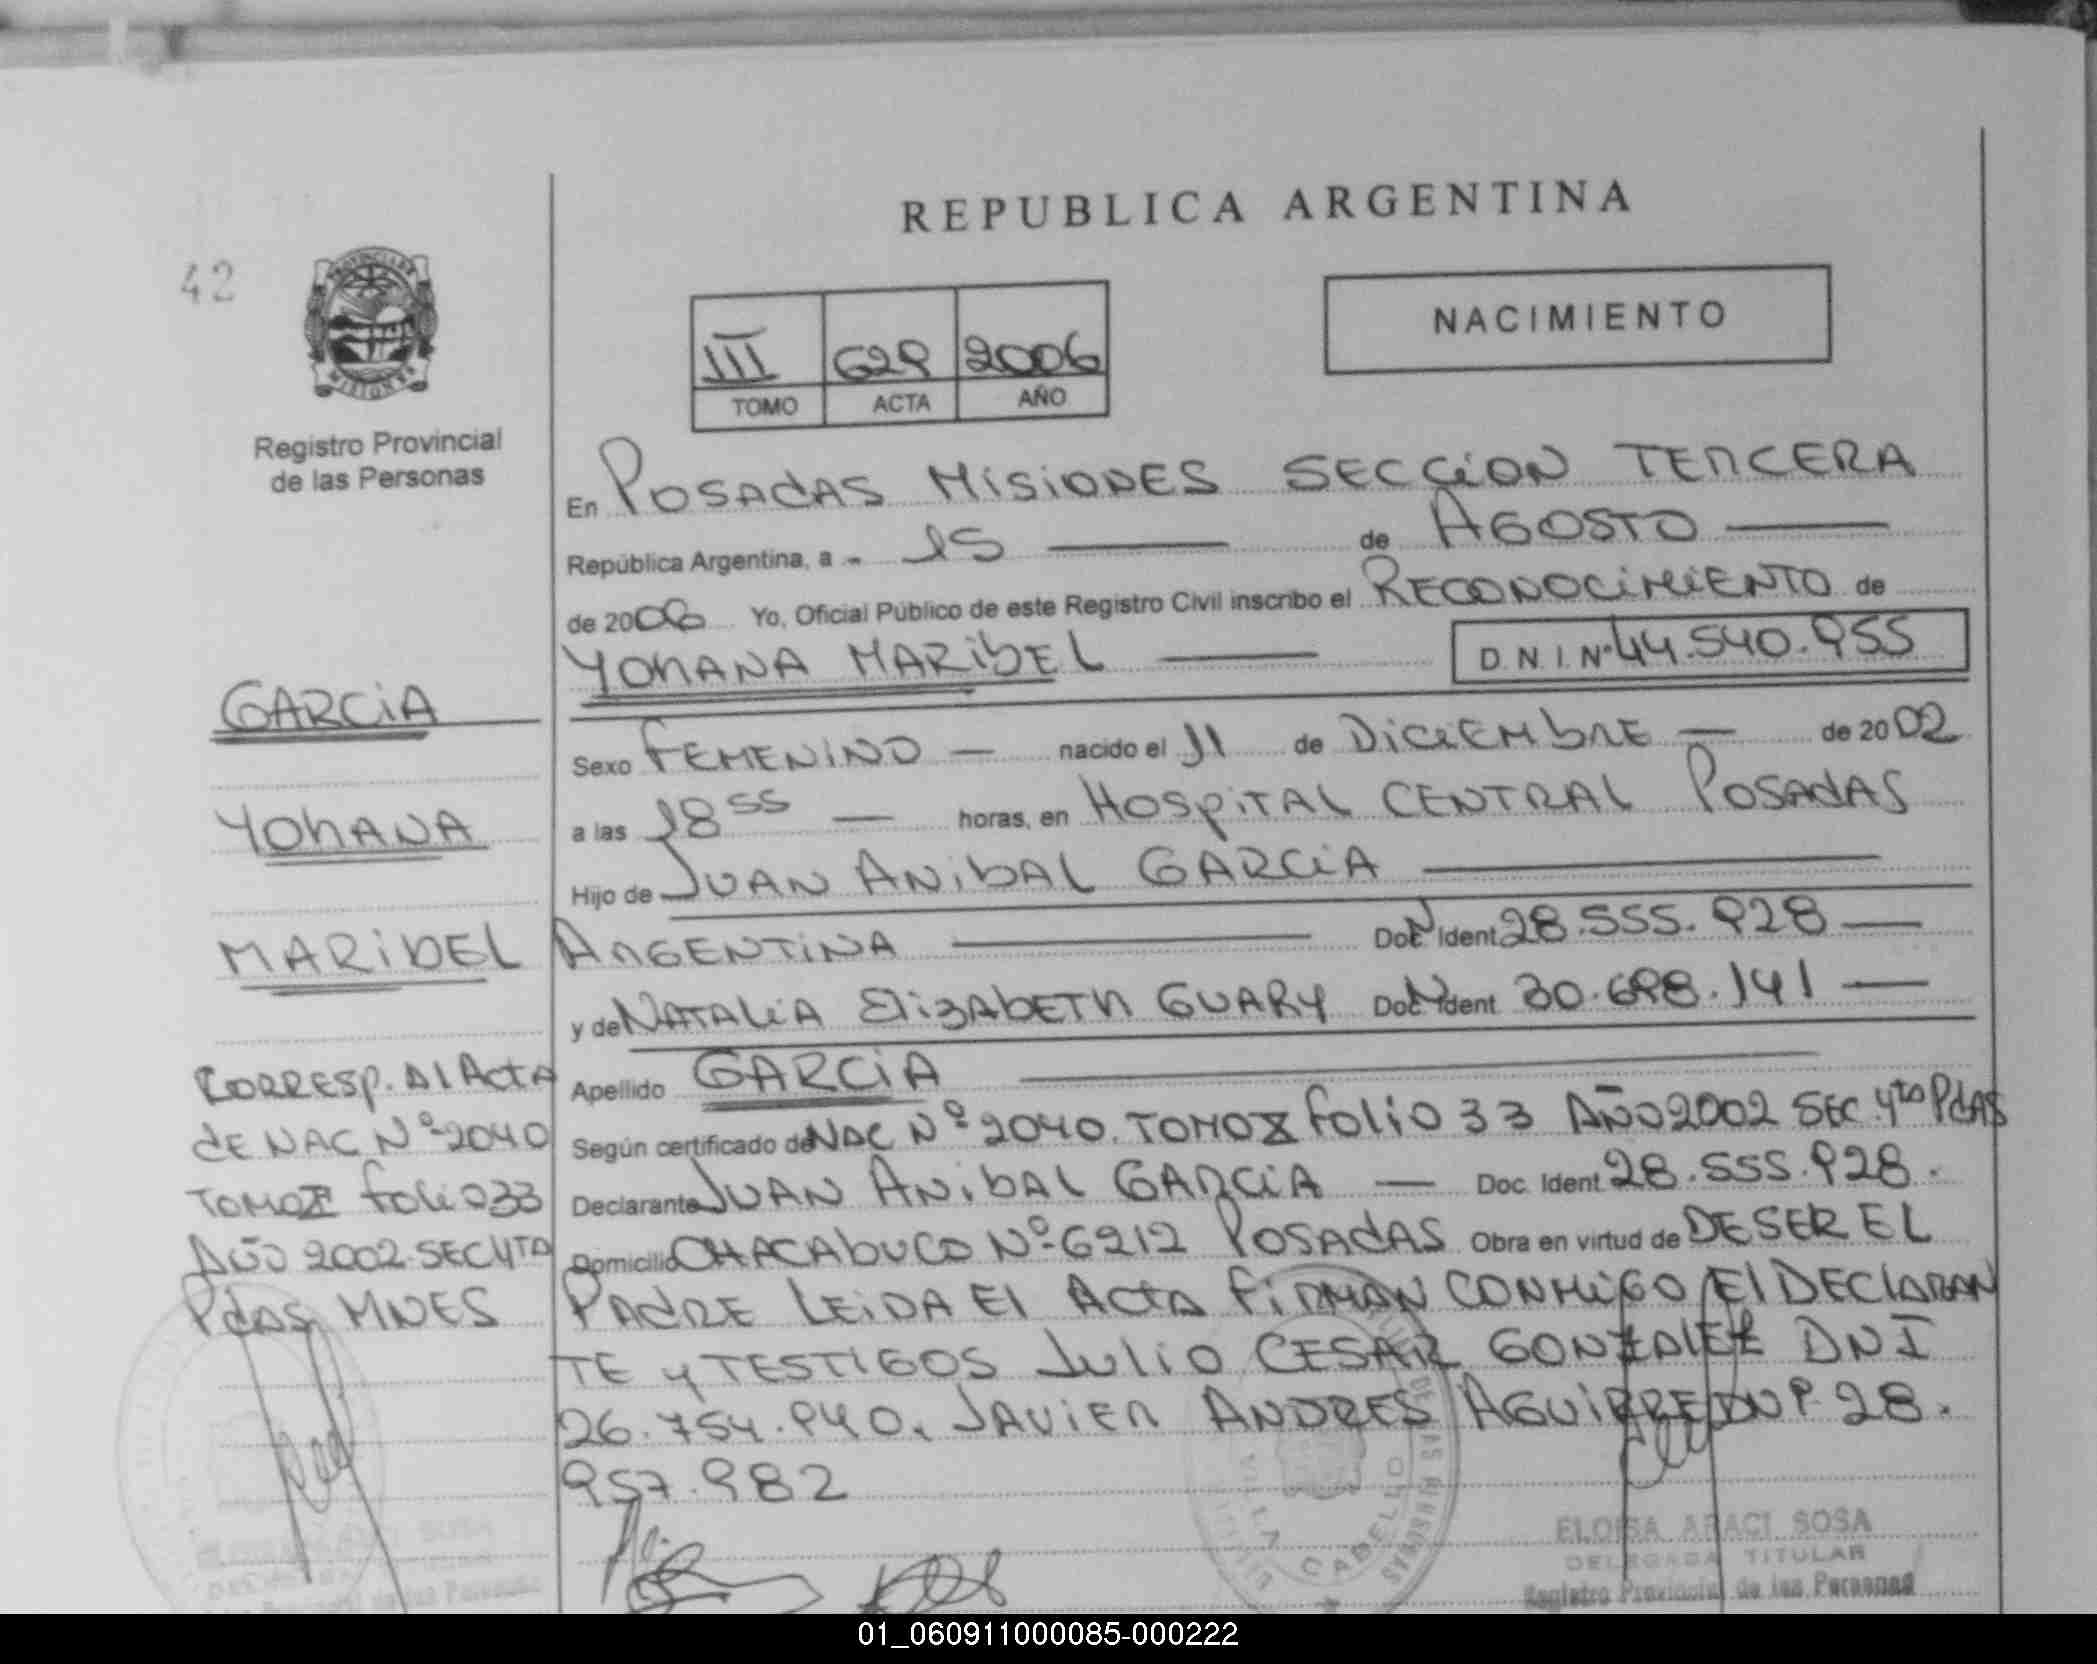 REPUBLICA ARGENTINA
42
PROVINCIA DE
MISIONES
Registro Provincial
de las Personas
NACIMIENTO
III 629 2006
TOMO ACTA AÑO
En POSADAS MISIONES SECCION TERCERA
República Argentina, a - 15 — de AGOSTO —
de 2006 Yo, Oficial Público de este Registro Civil inscribo el RECONOCIMIENTO de
YOHANA MARIBEL — D.N.I. Nº 44.540.955
GARCIA
Sexo FEMENINO — nacido el 11 de DICIEMBRE — de 2002
YOHANA
a las 18 55 — horas, en HOSPITAL CENTRAL POSADAS
Hijo de JUAN ANIBAL GARCIA —
MARIBEL
ARGENTINA — Doc. Ident. 28.555.928 —
y de NATALIA ELIZABETH GUARY Doc. Ident. 30.698.141 —
CORRESP. AL ACTA
DE NAC Nº 2040
TOMO X FOLIO 33
AÑO 2002 SEC 4TA
PDAS MNES
Apellido GARCIA —
Según certificado de NAC Nº 2040. TOMO X FOLIO 33 AÑO 2002 SEC 4to PDAS
Declarante JUAN ANIBAL GARCIA — Doc. Ident. 28.555.928.
Domicilio CHACABUCO Nº 6212 POSADAS Obra en virtud de DE SER EL
PADRE LEIDA EL ACTA FIRMAN CONMIGO EL DECLARAN
TE Y TESTIGOS JULIO CESAR GONZALEZ DNI
26.754.940. JAVIER ANDRES AGUIRRE DNI 28.
957.982
VILLA CABELLO
ELOISA ARACI SOSA
DELEGADA TITULAR
Registro Provincial de las Personas
01_060911000085-000222